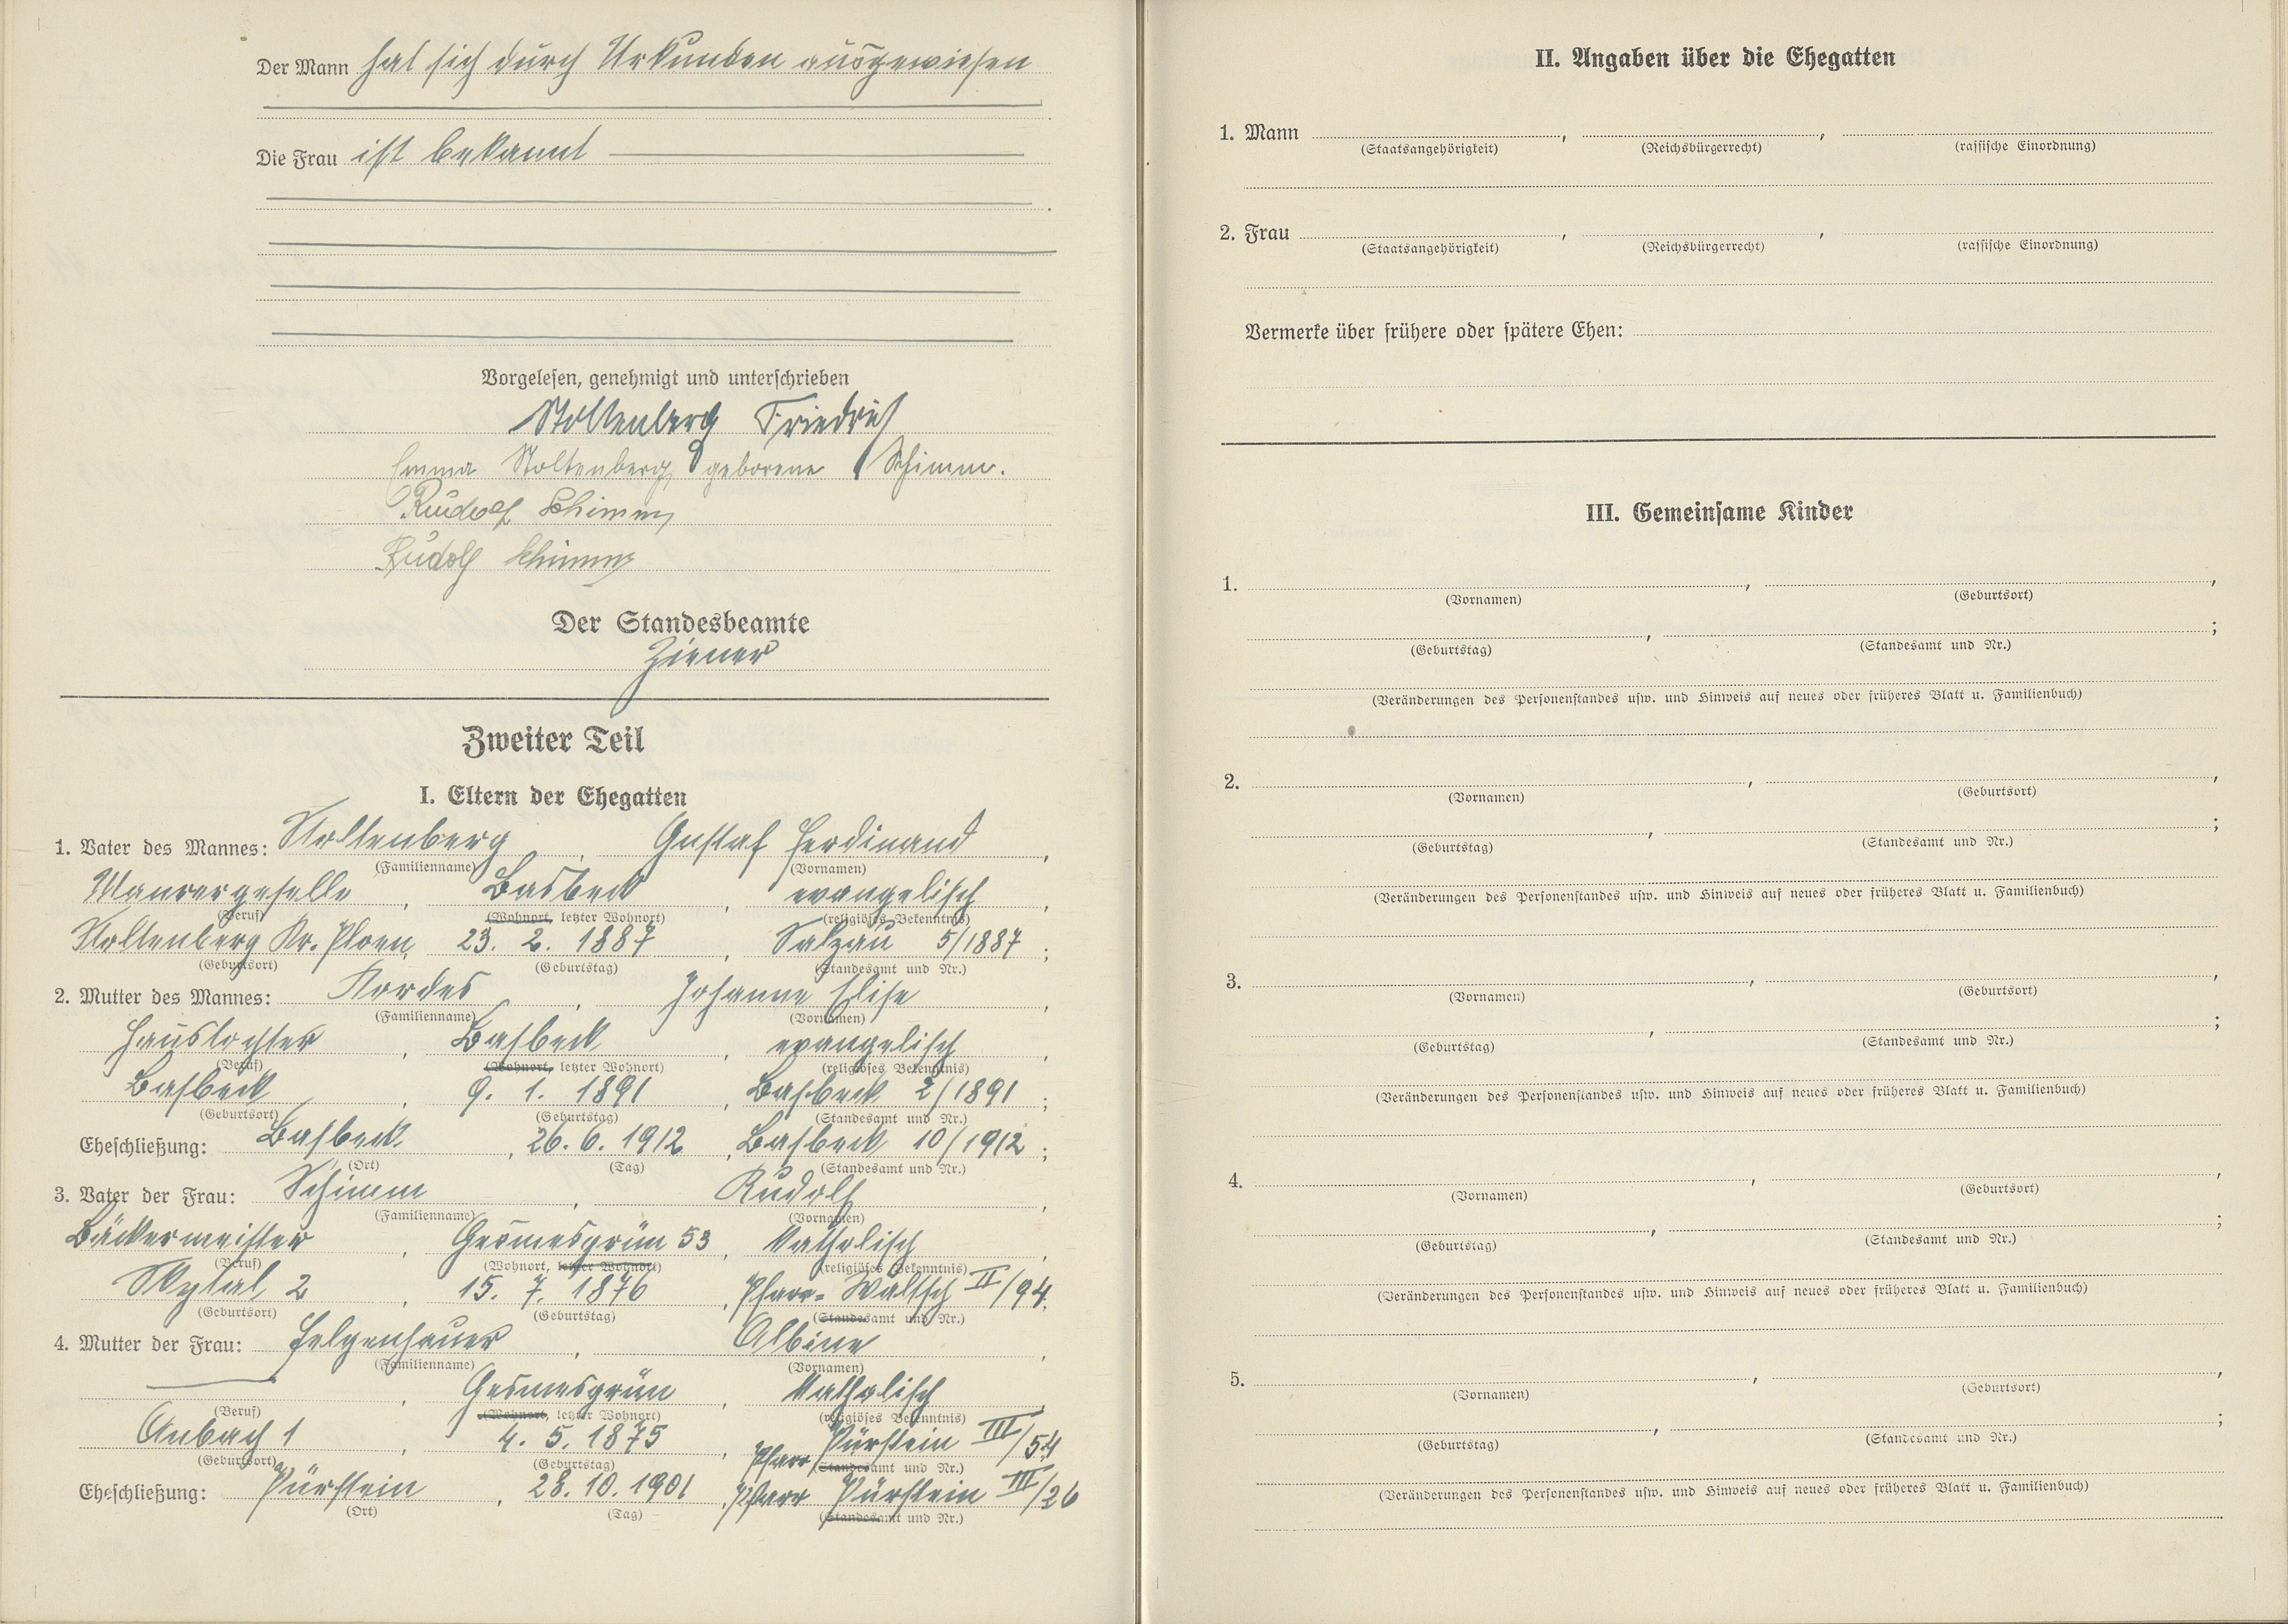 Der Mann hat sich durch Urkunden ausgewiesen
Die Frau ist bekannt
Vorgelesen, genehmigt und unterschrieben
Stoltenberg Friedrich
Emma Stoltenberg geborene Schimm.
Rudolf Schimm
Rudolf Schimm
Der Standesbeamte
Ziener
Zweiter Teil
I. Eltern der Ehegatten
1. Vater des Mannes: Stoltenberg, Gustaf Ferdinand,
(Familienname) (Vornamen)
Maurergeselle, Basbeck, evangelisch,
(Beruf) (Wohnort, letzter Wohnort) (religiöses Bekenntnis)
Stoltenberg Kr. Ploen, 23. 2. 1887, Salzau 5/1887;
(Geburtsort) (Geburtstag) (Standesamt und Nr.)
2. Mutter des Mannes: Kordes, Johanne Elise,
(Familienname) (Vornamen)
Haustochter, Basbeck, evangelisch,
(Beruf) (Wohnort, letzter Wohnort) (religiöses Bekenntnis)
Basbeck, 9. 1. 1891, Basbeck 2/1891;
(Geburtsort) (Geburtstag) (Standesamt und Nr.)
Eheschließung: Basbeck, 26. 6. 1912, Basbeck 10/1912;
(Ort) (Tag) (Standesamt und Nr.)
3. Vater der Frau: Schimm, Rudolf,
(Familienname) (Vornamen)
Bäckermeister, Gesmesgrün 53, katholisch,
(Beruf) (Wohnort, letzter Wohnort) (religiöses Bekenntnis)
2, 15. 7. 1876, Pfarr- Waltsch II/94.
(Geburtsort) (Geburtstag) (Standesamt und Nr.)
4. Mutter der Frau: Felgenhauer, Albine,
(Familienname) (Vornamen)
Gesmesgrün, katholisch,
(Beruf) (Wohnort, letzter Wohnort) (religiöses Bekenntnis)
Aubach 1, 4. 5. 1875, Pfarr Pürstein III/54
(Geburtsort) (Geburtstag) (Standesamt und Nr.)
Eheschließung: Pürstein, 28. 10. 1901, Pfarr Pürstein III/26
(Ort) (Tag) (Standesamt und Nr.)
II. Angaben über die Ehegatten
1. Mann , ,
(Staatsangehörigkeit) (Reichsbürgerrecht) (rassische Einordnung)
2. Frau , ,
(Staatsangehörigkeit) (Reichsbürgerrecht) (rassische Einordnung)
Vermerke über frühere oder spätere Ehen:
III. Gemeinsame Kinder
1. , ,
(Vornamen) (Geburtsort)
, ;
(Geburtstag) (Standesamt und Nr.)
(Veränderungen des Personenstandes usw. und Hinweis auf neues oder früheres Blatt u. Familienbuch)
2. , ,
(Vornamen) (Geburtsort)
, ;
(Geburtstag) (Standesamt und Nr.)
(Veränderungen des Personenstandes usw. und Hinweis auf neues oder früheres Blatt u. Familienbuch)
3. , ,
(Vornamen) (Geburtsort)
, ;
(Geburtstag) (Standesamt und Nr.)
(Veränderungen des Personenstandes usw. und Hinweis auf neues oder früheres Blatt u. Familienbuch)
4. , ,
(Vornamen) (Geburtsort)
, ;
(Geburtstag) (Standesamt und Nr.)
(Veränderungen des Personenstandes usw. und Hinweis auf neues oder früheres Blatt u. Familienbuch)
5. , ,
(Vornamen) (Geburtsort)
, ;
(Geburtstag) (Standesamt und Nr.)
(Veränderungen des Personenstandes usw. und Hinweis auf neues oder früheres Blatt u. Familienbuch)